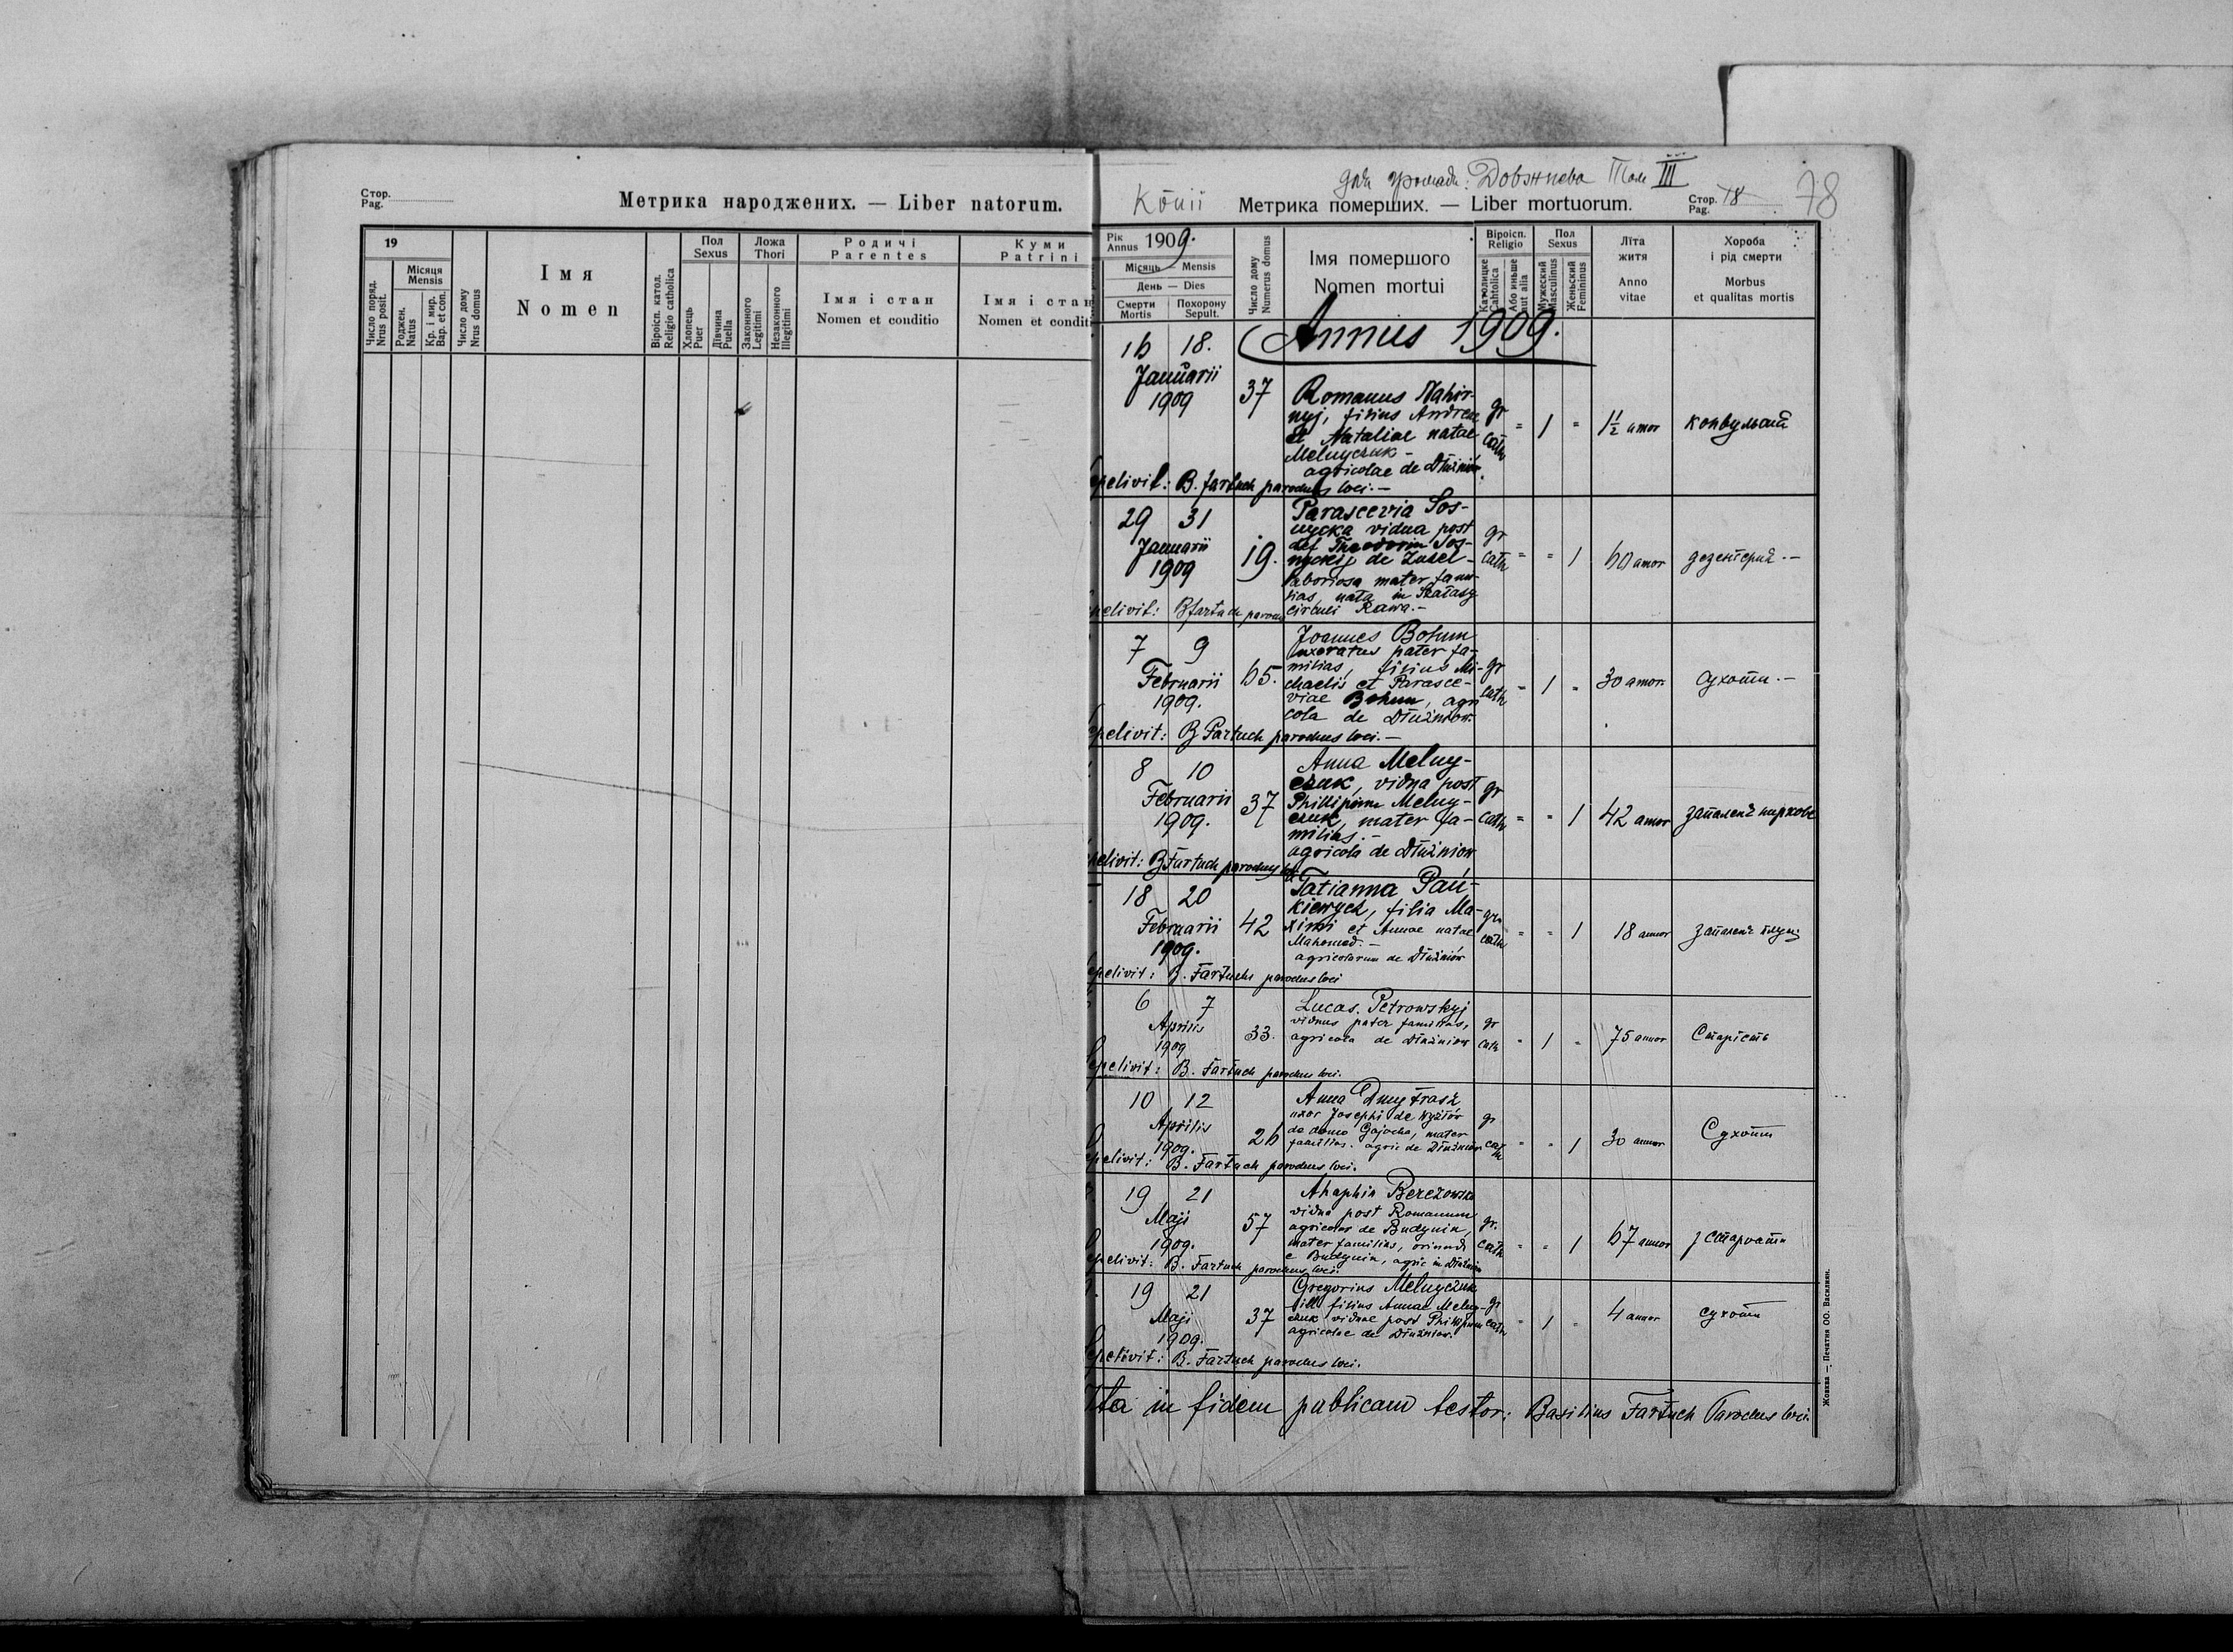 Стор.
Pag.
Метрика народжених. — Liber natorum.
19
Число поряд.
Nrus posit.
Місяця
Mensis
Роджен.
Natus
Кр. і мир.
Bap. et con.
Число дому
Nrus domus
Імя
Nomen
Віроісп. катол.
Religio catholica
Пол
Sexus
Хлопець
Puer
Дївчина
Puella
Ложа
Thori
Законного
Legitimi
Незаконного
Illegitimi
Родичі
Parentes
Імя і стан
Nomen et conditio
Куми
Patrini
Імя і стан
Nomen et conditi
для громади: Довжнева Том III
Копії Метрика померших. — Liber mortuorum.
Стор.
Pag. 78
78
Рік
Annus 1909.
Місяць — Mensis
День — Dies
Смерти
Mortis
Похорону
Sepult.
Число дому
Numerus domus
Імя помершого
Nomen mortui
Віроісп.
Religio
Католицке
Cahtolica
Або иньше
aut alia
Пол
Sexus
Мужеский
Masculinus
Женьский
Femininus
Лїта
житя
Anno
vitae
Хороба
і рід смерти
Morbus
et qualitas mortis
Annus 1909.
16 18.
Januarii
1909
37
Romanus Nahir-
nyj, filius Andreae
et Nataliae natae
Melnyczuk -
agricolae de Dłużniów
gr
cath
= 1 =
1½ annor
конвульсиї
pelivit: B. Fartuch parochus loci. —
29 31
Januarii
1909
19.
Parascevia Sos-
nycka vidua post
def Theodorum Sos-
nyckij de
laboriosa mater fami-
lias, nata in
circuli Rawa. -
gr
cath
= = 1
60 annor
дезентерия. —
pelivit: B Fartuch paroch
7 9
Februarii
1909.
65.
Joannes Bohun
uxoratus pater fa-
milias, filius Mi-
chaelis et Parasce-
viae Bohun, agri
cola de Dłużniow.
gr
cath
= 1 =
30 annor
сухоти. —
pelivit: B Fartuch parochus loci. —
8 10
Februarii
1909.
37
Anna Melny-
czuk, vidua post
Philippum Melny-
czuk, mater fa-
milias. -
agricola de Dłużniow
gr
cath
= = 1
42 annor
запаленє нирkове
pelivit: B Fartuch parochus loci
18 20
Februarii
1909.
42
Tatianna Pań-
kiewych, filia Ma-
ximi et Annae natae
Mahomed. -
agricolarum de Dłużniów
gr.
cath
= = 1
18 annor
запаленє
pelivit: B. Fartuch parochus loci
6 7
Aprilis
1909
33.
Lucas Petrowskyj
viduus pater familias,
agricola de Dłużniow
gr
cath
= 1 =
75 annor
Старість
pelivit: B. Fartuch parochus loci.
10 12
Aprilis
1909.
26
Anna Dmytrasz
uxor Josephi de Wyżłów
de domo Gajocha, mater
familias. agric de Dłużniów
gr
cath
= = 1
30 annor
Сухоти
pelivit: B. Fartuch parochus loci.
19 21
Maji
1909.
57
Ahaphia Berezowska
vidua post Romanum
agricolas de Budynin,
mater familias, oriundi
e Budynin, agric in Dłużniów
gr.
cath
= = 1
67 annor
з старости
pelivit: B. Fartuch parochus loci.
19 21
Maji
1909.
37
Gregorius Melnyczuk
ill. filius Annae Melny-
czuk viduae post Philippum
agricolae de Dłużniow.
gr
cath
= 1 =
4 annor
сухоти
Sepelivit: B. Fartuch parochus loci.
Ita in fidem publicam testor: Basilius Fartuch Parochus loci.
Жовква — Печатня ОО. Василиян.